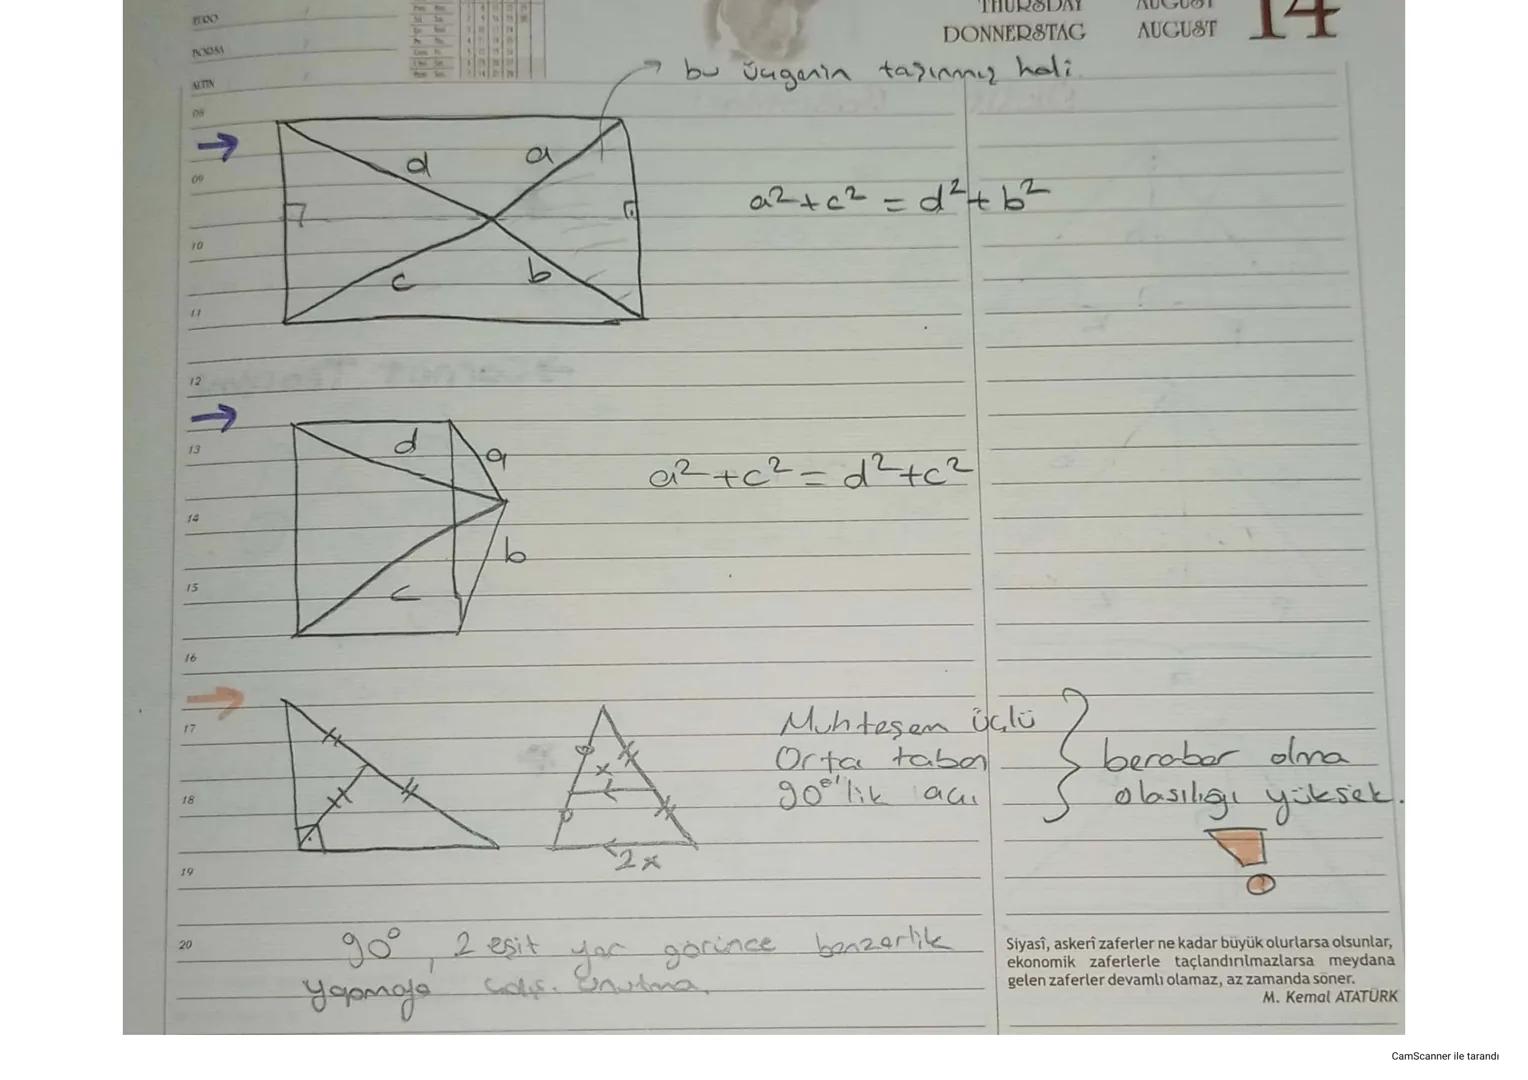 EURO
BORSA
ALTIN
THURSDAY AUGUST 14
DONNERSTAG AUGUST
bu üçgenin taşınmış hali
08
09
10
11
12
13
14
15
16
17
18
19
20
d a
c b
a² + c² = d² + b²
d a
b
c
a² + c² = d² + c²
x
2x
Muhteşem üçlü
Orta taban
90°'lik açı
beraber olma
olasılığı yüksek.
90°, 2 eşit yer görünce benzerlik
yapmaya çalış. Unutma.
Siyasî, askerî zaferler ne kadar büyük olurlarsa olsunlar,
ekonomik zaferlerle taçlandırılmazlarsa meydana
gelen zaferler devamlı olamaz, az zamanda söner.
M. Kemal ATATÜRK
CamScanner ile tarandı